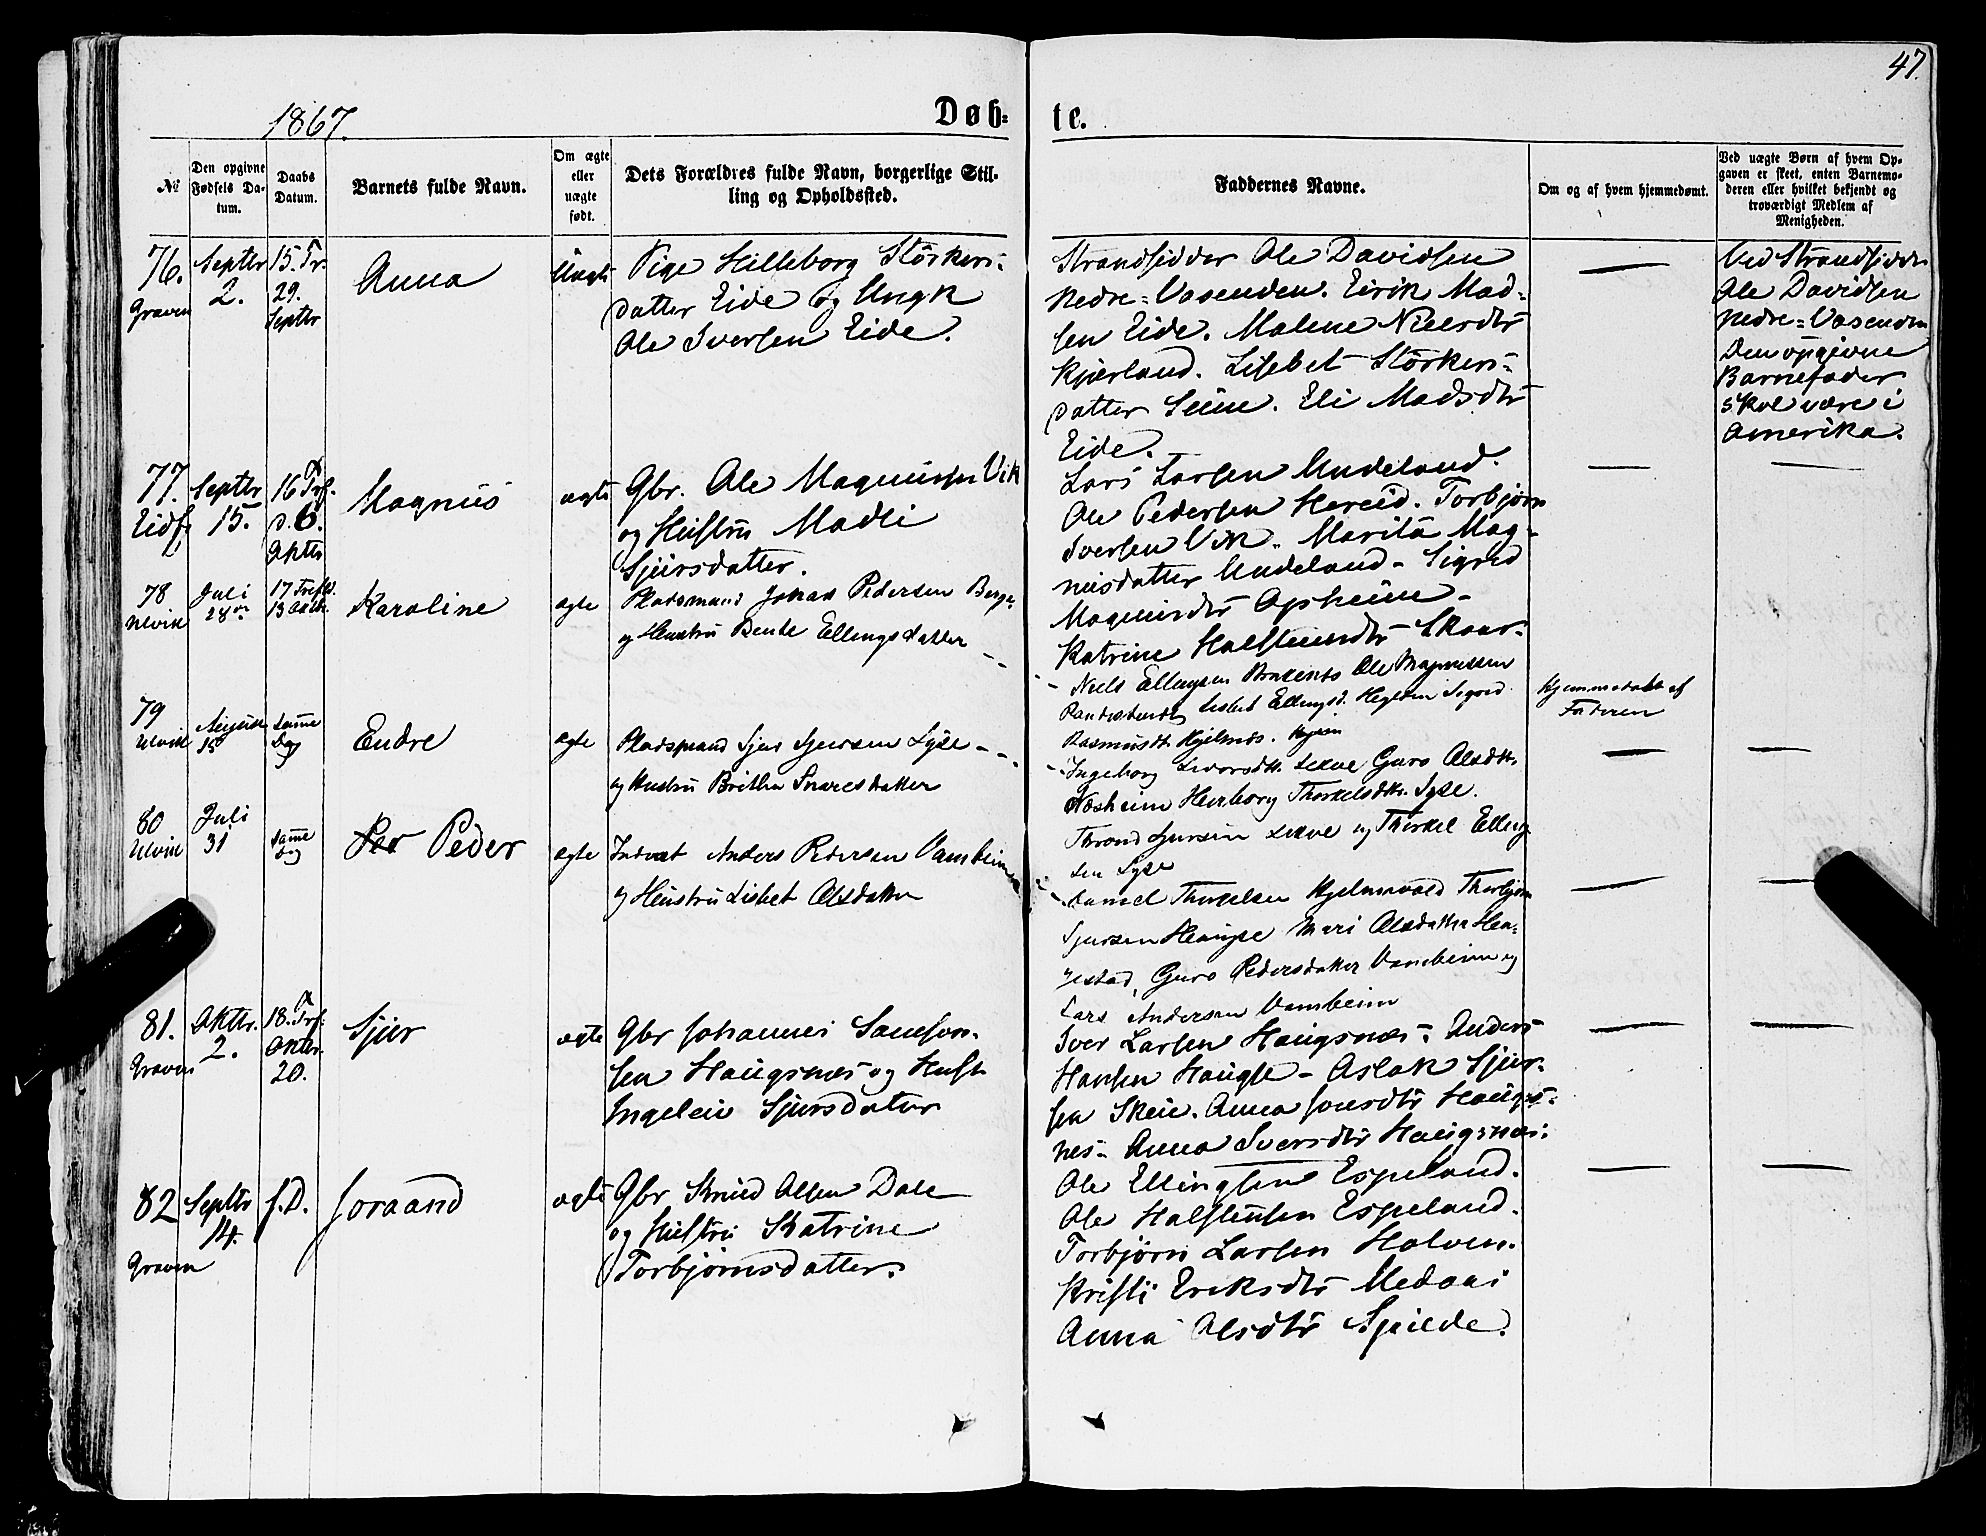 47.
1867.
Døb-
te.
№
Den opgivne Fødsels Da-
tum.
Daabs
Datum.
Barnets fulde Navn.
Om ægte
eller
uægte
født.
Dets Forældres fulde Navn, borgerlige Stil-
ling og Opholdssted.
Faddernes Navne.
Om og af hvem hjemmedøbt.
Ved uægte Børn af hvem Op-
gaven er skeet, enten Barnemo-
deren eller hvilket bekjendt og
troværdigt Medlem af
Menigheden.
76.
Graven
Septbr
2.
15. Tr.
29.
Septbr
Anna
Uægte
Pige Hilleborg Störkers-
datter Eide og Ungk
Ole Iversen Eide.
Strandsidder Ole Davidsen
Nedre-Vasenden. Eirik Mad-
sen Eide. Malene Nielsdtr
Kjærland. Lisebet Störkers-
datter Seim. Eli Madsdtr
Eide.
Ved Strandsidder
Ole Davidsen
Nedre-Vasenden
Den opgivne
Barnefader
skal være i
Amerika.
77.
Eidf.
Septbr
15.
16 Trf.
d. 6.
Oktbr
Magnus
ægte
Gbr. Ole Magnussen Vik
og Hustru Madli
Sjursdatter.
Lars Larsen Undeland.
Ole Pedersen Hereid. Torbjørn
Iversen Vik. Marita Mag-
nusdatter Undeland - Sigrid
Magnusdtr Opheim -
Katrine Halsteinsdtr Skaar.
78
Ulvik
Juli
28
17 Trefd.
13 Oktb.
Karoline
ægte
Pladsmand Johan Pedersen Berge
og Hustru Bente Ellingsdatter
Niels Ellingsen Ole Magnussen
Lisbet Ellingsd. Sigrid
Rasmusdt Hjelmes.
Hjemmedøbt af
Faderen
79
Ulvik
August
15
samme
Dag
Endre
ægte
Pladsmand Sjur Sjursen Syse
og Hustru Britha Snaresdatter
Ingeborg Iversdtr. Lekve Guro Olsdtr.
Næsheim Herborg Thorkelsdtr. Syse.
Thrond Sjursen Lekve og Thorkel Elling
sen Syse
80
Ulvik
Juli
31
samme
Dag
Per Peder
ægte
Anders Pedersen Vambheim
og Hustru Lisbet Olsdatter
Samsel Thorkelsen Hjelmevold Thorbjørn
Sjursen Hauge Mari Olsdatter Hen-
jestad, Guro Pedersdatter Vambheim og
Lars Andersen Vambheim
81.
Graven
Oktbr.
2.
18. Trf.
Oktbr.
20.
Sjur
ægte
Gbr Johannes Samson-
sen Haugsnes og Hust
Ingeleiv Sjursdatter
Iver Larsen Haugsnes. Anders
Hansen Haugse - Aslak Sjur-
sen Skeie. Anna Jonsdtr Haugs-
nes - Anna Iversdtr Haugsnes.
82
Graven
Septbr
14.
s. D.
Joraand
ægte
Gbr Knud Olsen Dale
og Hustru Katrine
Torbjørnsdatter.
Ole Ellingsen Espeland.
Ole Halstensen Espeland.
Torbjörn Larsen Holven.
Kristi Eriksdtr Medaas
Anna Olsdtr Spilde.